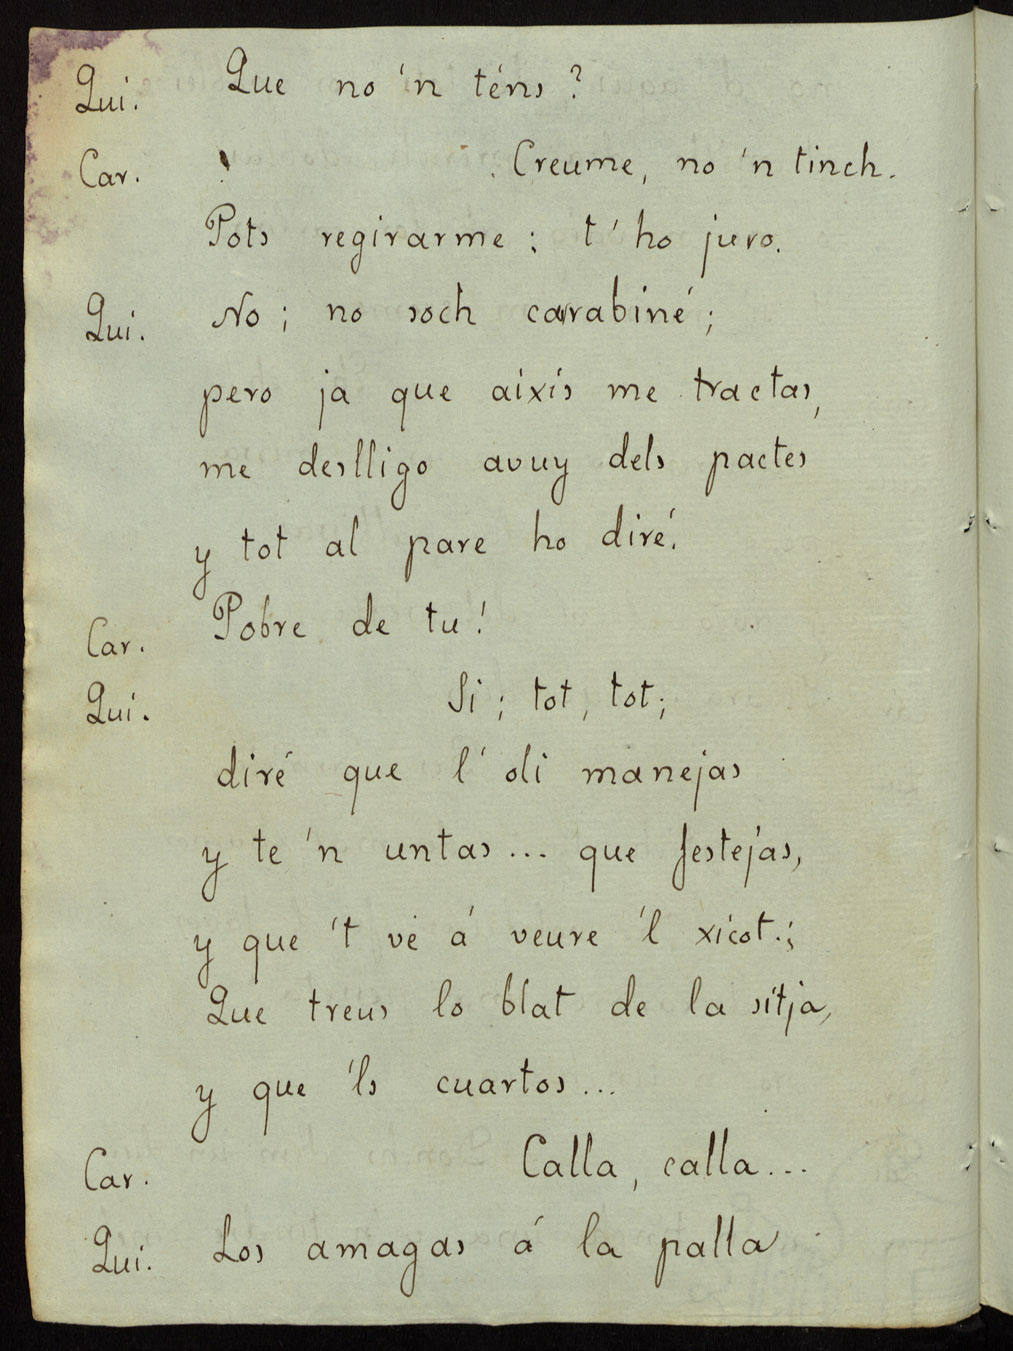 Qui. Que no 'n téns?
Car. Creume, no 'n tinch.
Pots regirarme; t' ho juro.
Qui. No; no soch carabiné;
pero ja que aixís me tractas,
me deslligo avuy dels pactes
y tot al pare ho diré.
Car. Pobre de tu!
Qui. Si; tot, tot;
diré que l' oli manejas
y te 'n untas... que festejas,
y que 't ve á veure 'l xicot.;
Que treus lo blat de la sitja,
y que 'ls cuartos...
Car. Calla, calla...
Qui. Los amagas á la palla